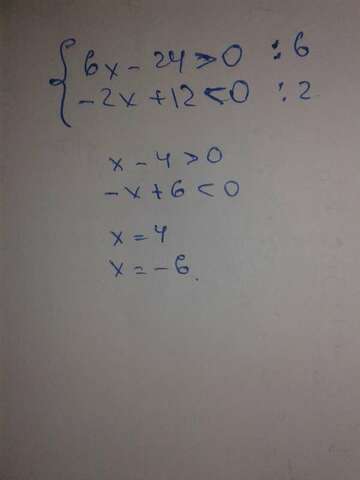 { 6x - 24 > 0 :6
-2x + 12 < 0 :2
x - 4 > 0
-x + 6 < 0
x = 4
x = -6.